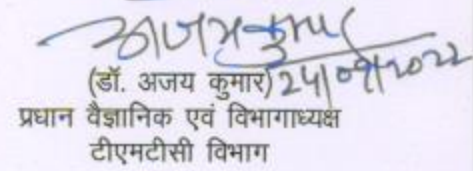 अजय कुमार
(डॉ. अजय कुमार) 24/09/2022
प्रधान वैज्ञानिक एवं विभागाध्यक्ष
टीएमटीसी विभाग